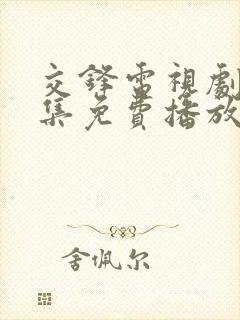 交鋒電視劇
集免費播放
舍佩尔